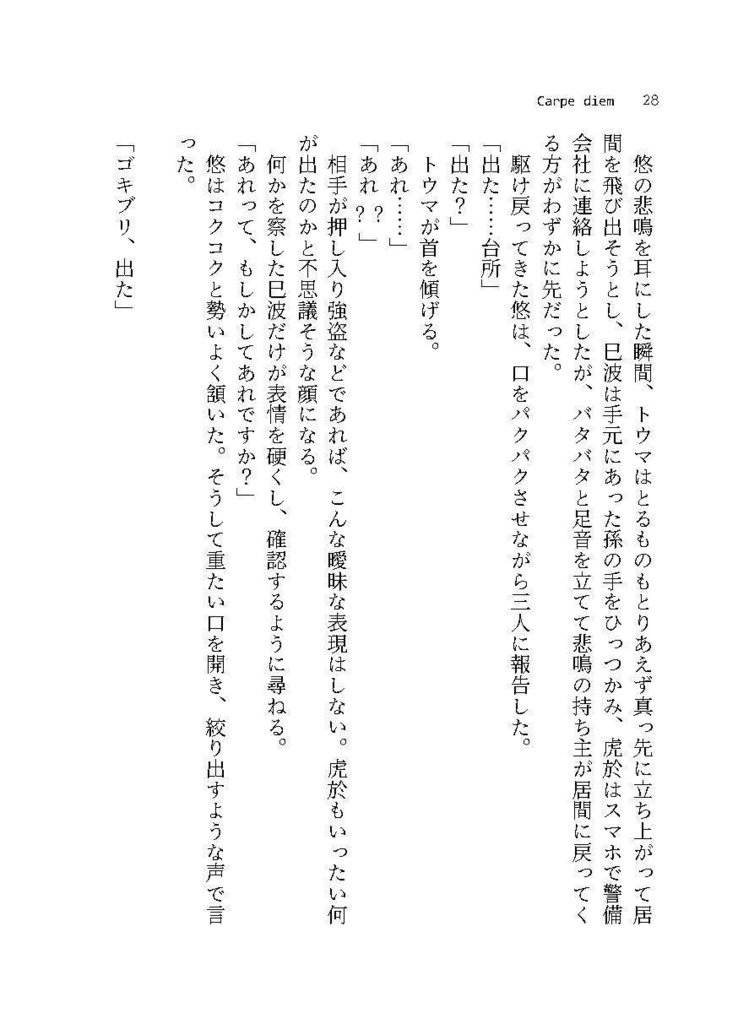 Carpe diem 28
悠の悲鳴を耳にした瞬間、トウマはとるものもとりあえず真っ先に立ち上がって居
間を飛び出そうとし、巳波は手元にあった孫の手をひっつかみ、虎於はスマホで警備
会社に連絡しようとしたが、バタバタと足音を立てて悲鳴の持ち主が居間に戻ってく
る方がわずかに先だった。
駆け戻ってきた悠は、口をパクパクさせながら三人に報告した。
「出た……台所」
「出た？」
トウマが首を傾げる。
「あれ……」
「あれ？？」
相手が押し入り強盗などであれば、こんな曖昧な表現はしない。虎於もいったい何
が出たのかと不思議そうな顔になる。
何かを察した巳波だけが表情を硬くし、確認するように尋ねる。
「あれって、もしかしてあれですか？」
悠はコクコクと勢いよく頷いた。そうして重たい口を開き、絞り出すような声で言
った。
「ゴキブリ、出た」